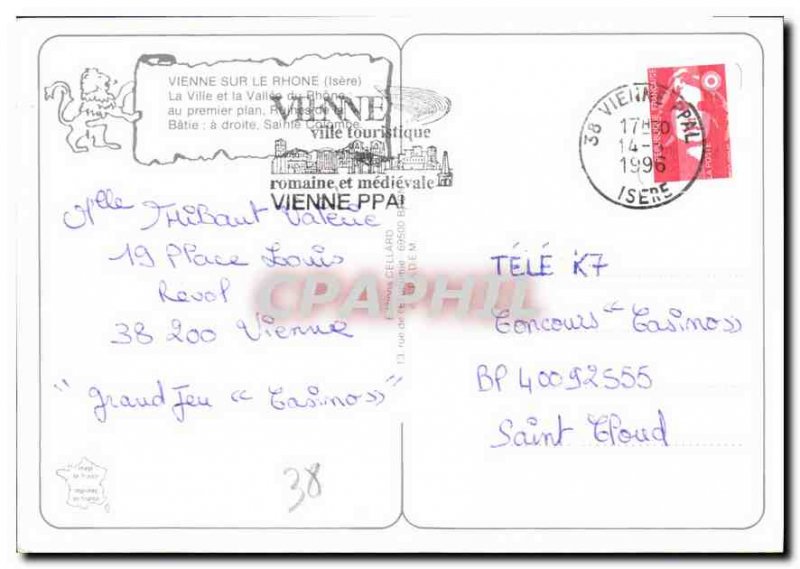 VIENNE SUR LE RHONE (Isère)
La Ville et la Vallée du Rhône
au premier plan, Ruines de la
Bâtie : à droite, Sainte Colombe
VIENNE
ville touristique
romaine et médiévale
VIENNE PPAL
38 VIENNE PPAL
17H30
14-
1996
ISERE
REPUBLIQUE FRANÇAISE
LA POSTE
Mlle Thibaut Valérie
19 Place Louis
Revol
38 200 Vienne
"Grand Jeu « Casino »
38
CELLARD
13, rue de 69500 BRON
CPAPHIL
TÉLÉ K7
Concours « Casino »
BP 40092S55
Saint Cloud